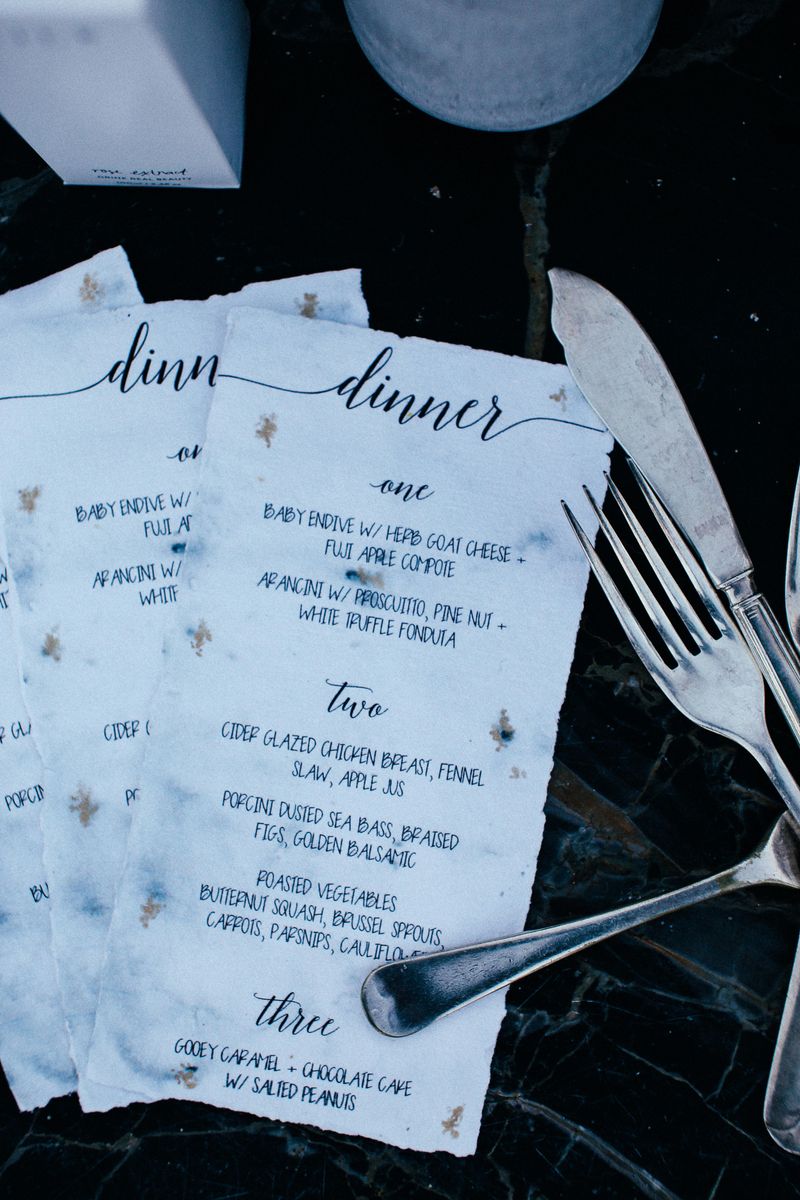 rose extract
dinner
one
BABY ENDIVE W/ HERB GOAT CHEESE +
FUJI APPLE COMPOTE
ARANCINI W/ PROSCUITTO, PINE NUT +
WHITE TRUFFLE FONDUTA
two
CIDER GLAZED CHICKEN BREAST, FENNEL
SLAW, APPLE JUS
PORCINI DUSTED SEA BASS, BRAISED
FIGS, GOLDEN BALSAMIC
ROASTED VEGETABLES
BUTTERNUT SQUASH, BRUSSEL SPROUTS,
CARROTS, PARSNIPS, CAULIFLOWE
three
GOOEY CARAMEL + CHOCOLATE CAKE
W/ SALTED PEANUTS
dinn
on
BABY ENDIVE W/
FUJI AP
ARANCINI W/
WHIT
CIDER G
P
BU
R GLA
PORCIN